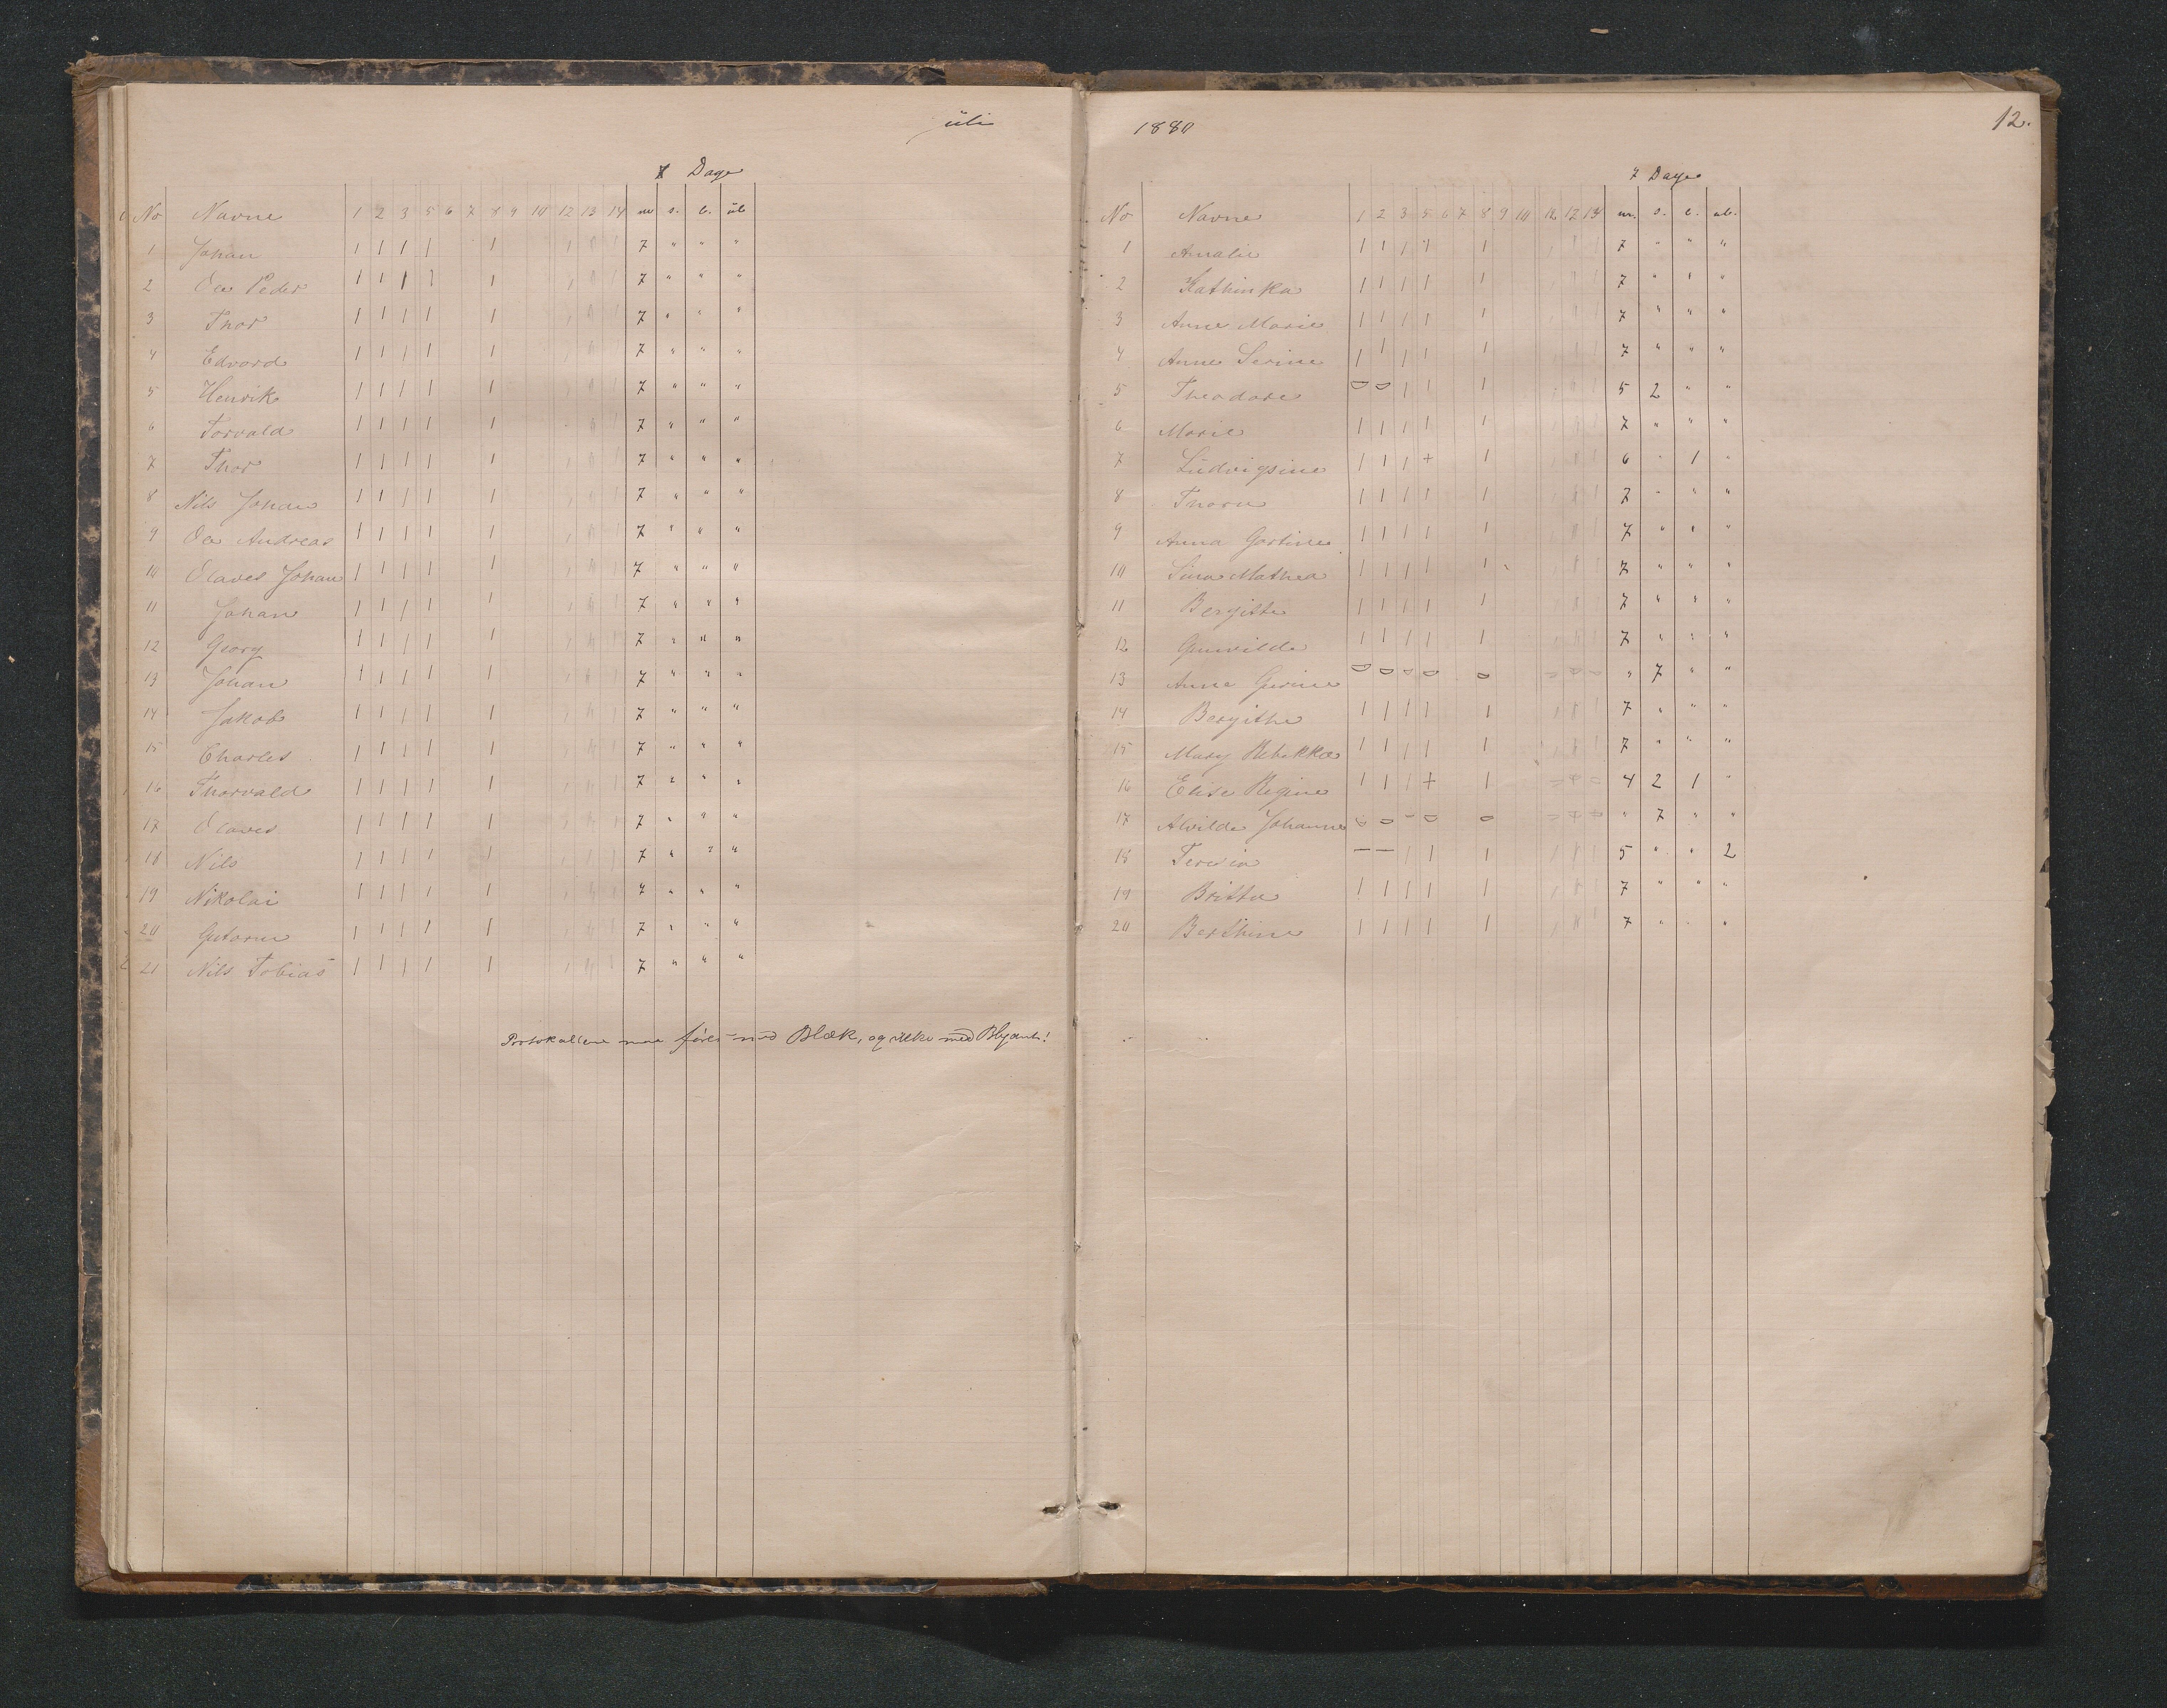 Juli
7 Dage
No Navne 1 2 3 5 6 7 8 9 10 12 13 14 m s. l. ul
1 Johan 1 1 1 1 1 1 1 1 7 " " "
2 Ole Peder 1 1 1 1 1 1 1 1 7 " " "
3 Thor 1 1 1 1 1 1 1 1 7 " " "
4 Edvard 1 1 1 1 1 1 1 1 7 " " "
5 Henrik 1 1 1 1 1 1 1 1 7 " " "
6 Torvald 1 1 1 1 1 1 1 1 7 " " "
7 Thor 1 1 1 1 1 1 1 1 7 " " "
8 Nils Johan 1 1 1 1 1 1 1 1 7 " " "
9 Ole Andreas 1 1 1 1 1 1 1 1 7 " " "
10 Olaves Johan 1 1 1 1 1 1 1 1 7 " " "
11 Johan 1 1 1 1 1 1 1 1 7 " " "
12 Georg 1 1 1 1 1 1 1 1 7 " " "
13 Johan 1 1 1 1 1 1 1 1 7 " " "
14 Jakob 1 1 1 1 1 1 1 1 7 " " "
15 Charles 1 1 1 1 1 1 1 1 7 " " "
16 Thorvald 1 1 1 1 1 1 1 1 7 " " "
17 Olaves 1 1 1 1 1 1 1 1 7 " " "
18 Nils 1 1 1 1 1 1 1 1 7 " " "
19 Nikolai 1 1 1 1 1 1 1 1 7 " " "
20 Gutorm 1 1 1 1 1 1 1 1 7 " " "
21 Nils Tobias 1 1 1 1 1 1 1 1 7 " " "
Protokollene maa føres med Blæk, og ikke med Blyant!
1880
12.
7 Dage
No Navne 1 2 3 5 6 7 8 9 10 12 13 m. s. l. ul.
1 Amalie 1 1 1 1 1 1 1 1 7 " " "
2 Kathinka 1 1 1 1 1 1 1 1 7 " " "
3 Anne Marie 1 1 1 1 1 1 1 1 7 " " "
4 Anne Serine 1 1 1 1 1 1 1 1 7 " " "
5 Theodore 0 0 1 1 1 1 1 1 5 2 " "
6 Marie 1 1 1 1 1 1 1 1 7 " " "
7 Ludvigsine 1 1 1 + 1 1 1 1 6 " 1 "
8 Thora 1 1 1 1 1 1 1 1 7 " " "
9 Anna Gostine 1 1 1 1 1 1 1 1 7 " " "
10 Sina Mathea 1 1 1 1 1 1 1 1 7 " " "
11 Bergitte 1 1 1 1 1 1 1 1 7 " " "
12 Gunvilde 1 1 1 1 1 1 1 1 7 " " "
13 Anne Gurine 0 0 0 0 0 0 0 0 " 7 " "
14 Bergithe 1 1 1 1 1 1 1 1 7 " " "
15 Mary Rebekka 1 1 1 1 1 1 1 1 7 " " "
16 Elise Regine 1 1 1 + 1 0 0 0 4 2 1 "
17 Alvilde Johanne 0 0 0 0 0 0 0 0 " 7 " "
18 Teresia — — 1 1 1 1 1 1 5 " " 2
19 Britha 1 1 1 1 1 1 1 1 7 " " "
20 Berthine 1 1 1 1 1 1 1 1 7 " " "